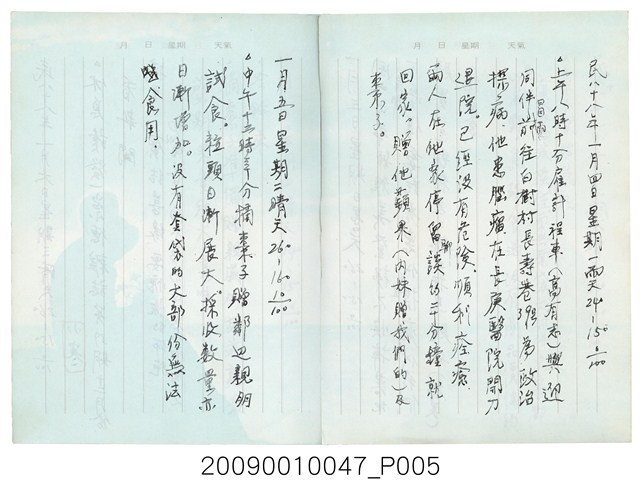 月 日 星期 天氣
民八十八年一月四日星期一雨天24-150 0/100
上午八時十分雇計程車(高有志)與迎
同伴冒雨前往白樹村長壽巷39號為政治
探病。他患腦瘤在長庚醫院開刀
退院。已經沒有危險,順利痊癒
兩人在他家停留聊談約二十分鐘就
回家。贈他蘋果(內妹贈我們的)及
棗子。
月 日 星期 天氣
一月五日星期二晴天26-16 10/100
中午十二時半分摘棗子贈鄰近親朋
試食。粒頭日漸展大,採收數量亦
日漸增加。沒有套袋的大部份無法
食用。
20090010047_P005